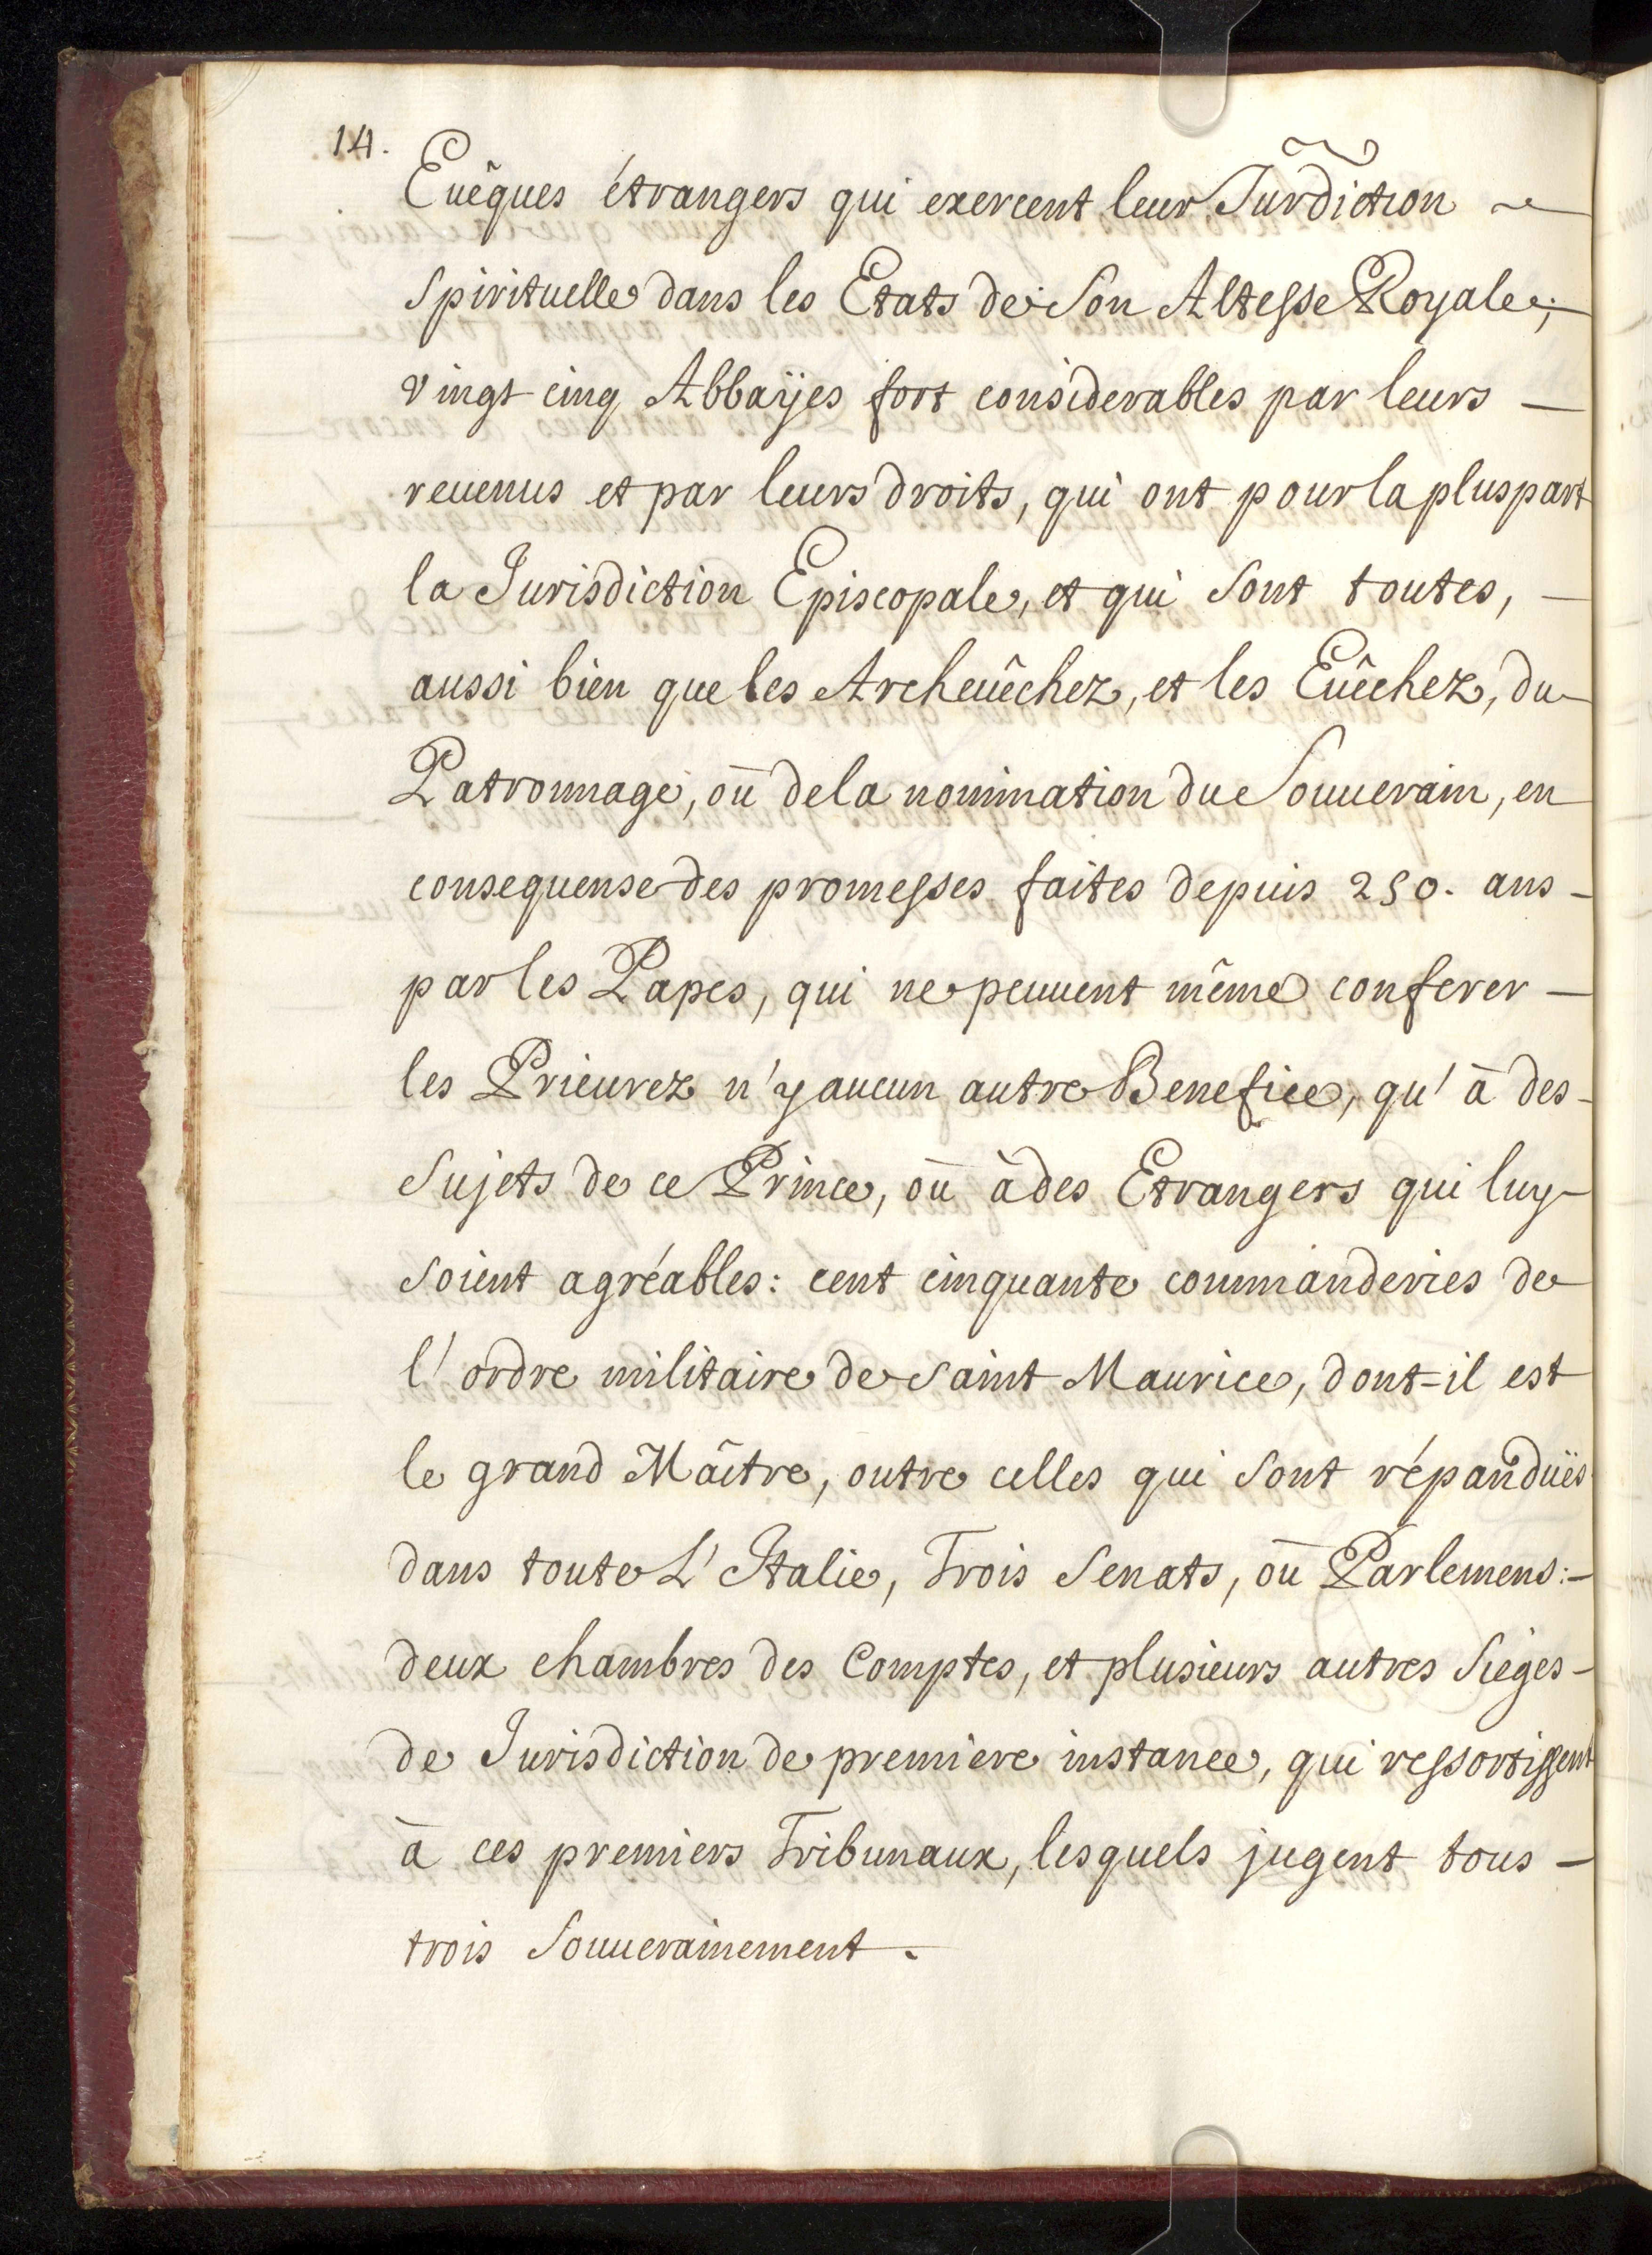 14.
Euêques étrangers qui exercent leur Jurdiction
spirituelle dans les Etats de Son Altesse Royale;
vingt cinq Abbaÿes fort considerables par leurs
reuenus et par leurs droits, qui ont pour la pluspart
la Jurisdiction Episcopale, et qui sont toutes,
aussi bien que les Archeuêchez, et les Euêchez, du
Patronnage, ou de la nomination du Souuerain, en
consequense des promesses faites depuis 250. ans
par les Papes, qui ne peuuent même conferer
les Prieurez n'y aucun autre Benefice, qu'à des
sujets de ce Prince, ou à des Etrangers qui luy
soient agréables: cent cinquante commanderies de
l'ordre militaire de Saint Maurice, dont-il est
le grand Maître, outre celles qui sont répanduës
dans toute L'Italie, Trois Senats, ou Parlemens:
deux chambres des Comptes, et plusieurs autres Sieges
de Jurisdiction de premiere instance, qui ressortissent
à ces premiers Tribunaux, lesquels jugent tous
trois Souuerainement.